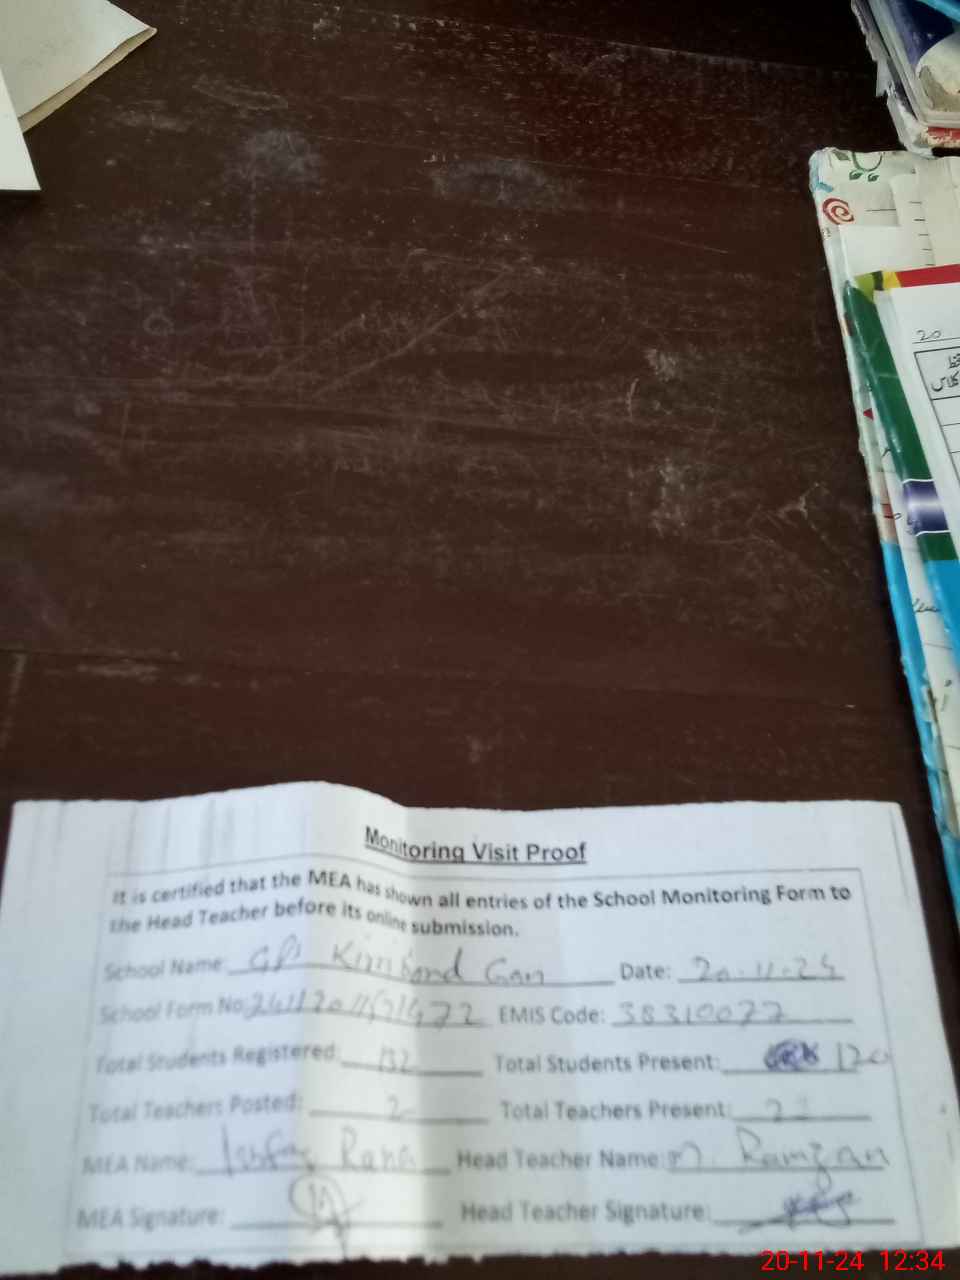 20
Monitoring Visit Proof
It is certified that the MEA has shown all entries of the School Monitoring Form to
the Head Teacher before its online submission.
School Name: GPS Date: 20-11-24
School Form No: EMIS Code: 38310077
Total Students Registered: 132 Total Students Present: 120
Total Teachers Posted: 2 Total Teachers Present: 2
MEA Name: Ishfaq Rana Head Teacher Name: M. Ramzan
MEA Signature: Head Teacher Signature:
20-11-24 12:34